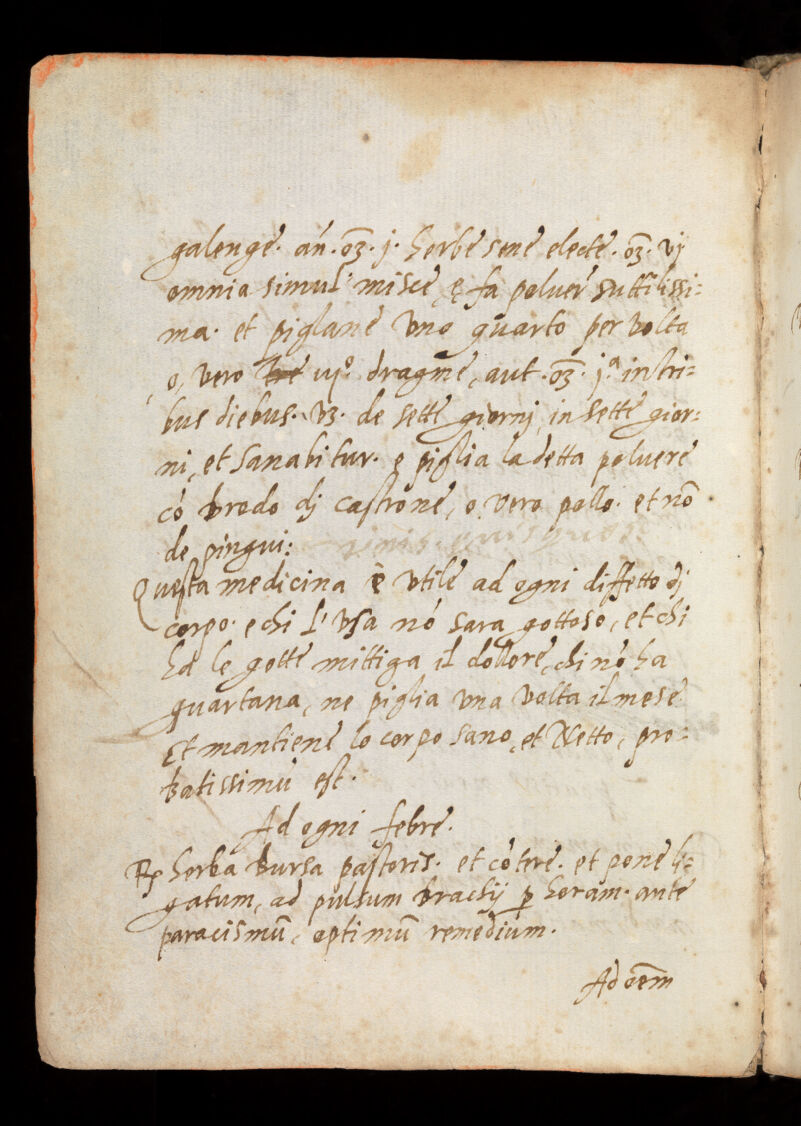 galenge. an̄. oʒ. j. herbe sene electe. oʒ. vj
omnia simul misce, e fa polvere suttilissi:
ma. et piglane uno quarto per volta
o, vero iijº. dragme, aut. oʒ. jª. in tri:
bus diebus. vʒ. de sette giornj, in sette gior:
ni, et sanabitur. e piglia la detta polvere
cō brodo dj castrone, o vero pollo. et nō
de pingui:
Questa medicina è utile ad ogni diffetto dj
corpo. e chi l'usa nō sara gottoso, et chi
ha le gotte mittiga il dollore, chi nō ha
quartana, ne piglia una volta il mese
Et mantiene lo corpo sano, et Netto, pro:
batissimū est.
Ad ogni febre.
℞ herba bursa pastoris. et cōtere. et pone li:
gatum, ad pulsum brachij ꝑ horam. ante
paracismū, optimū remedium.
Ad oēm